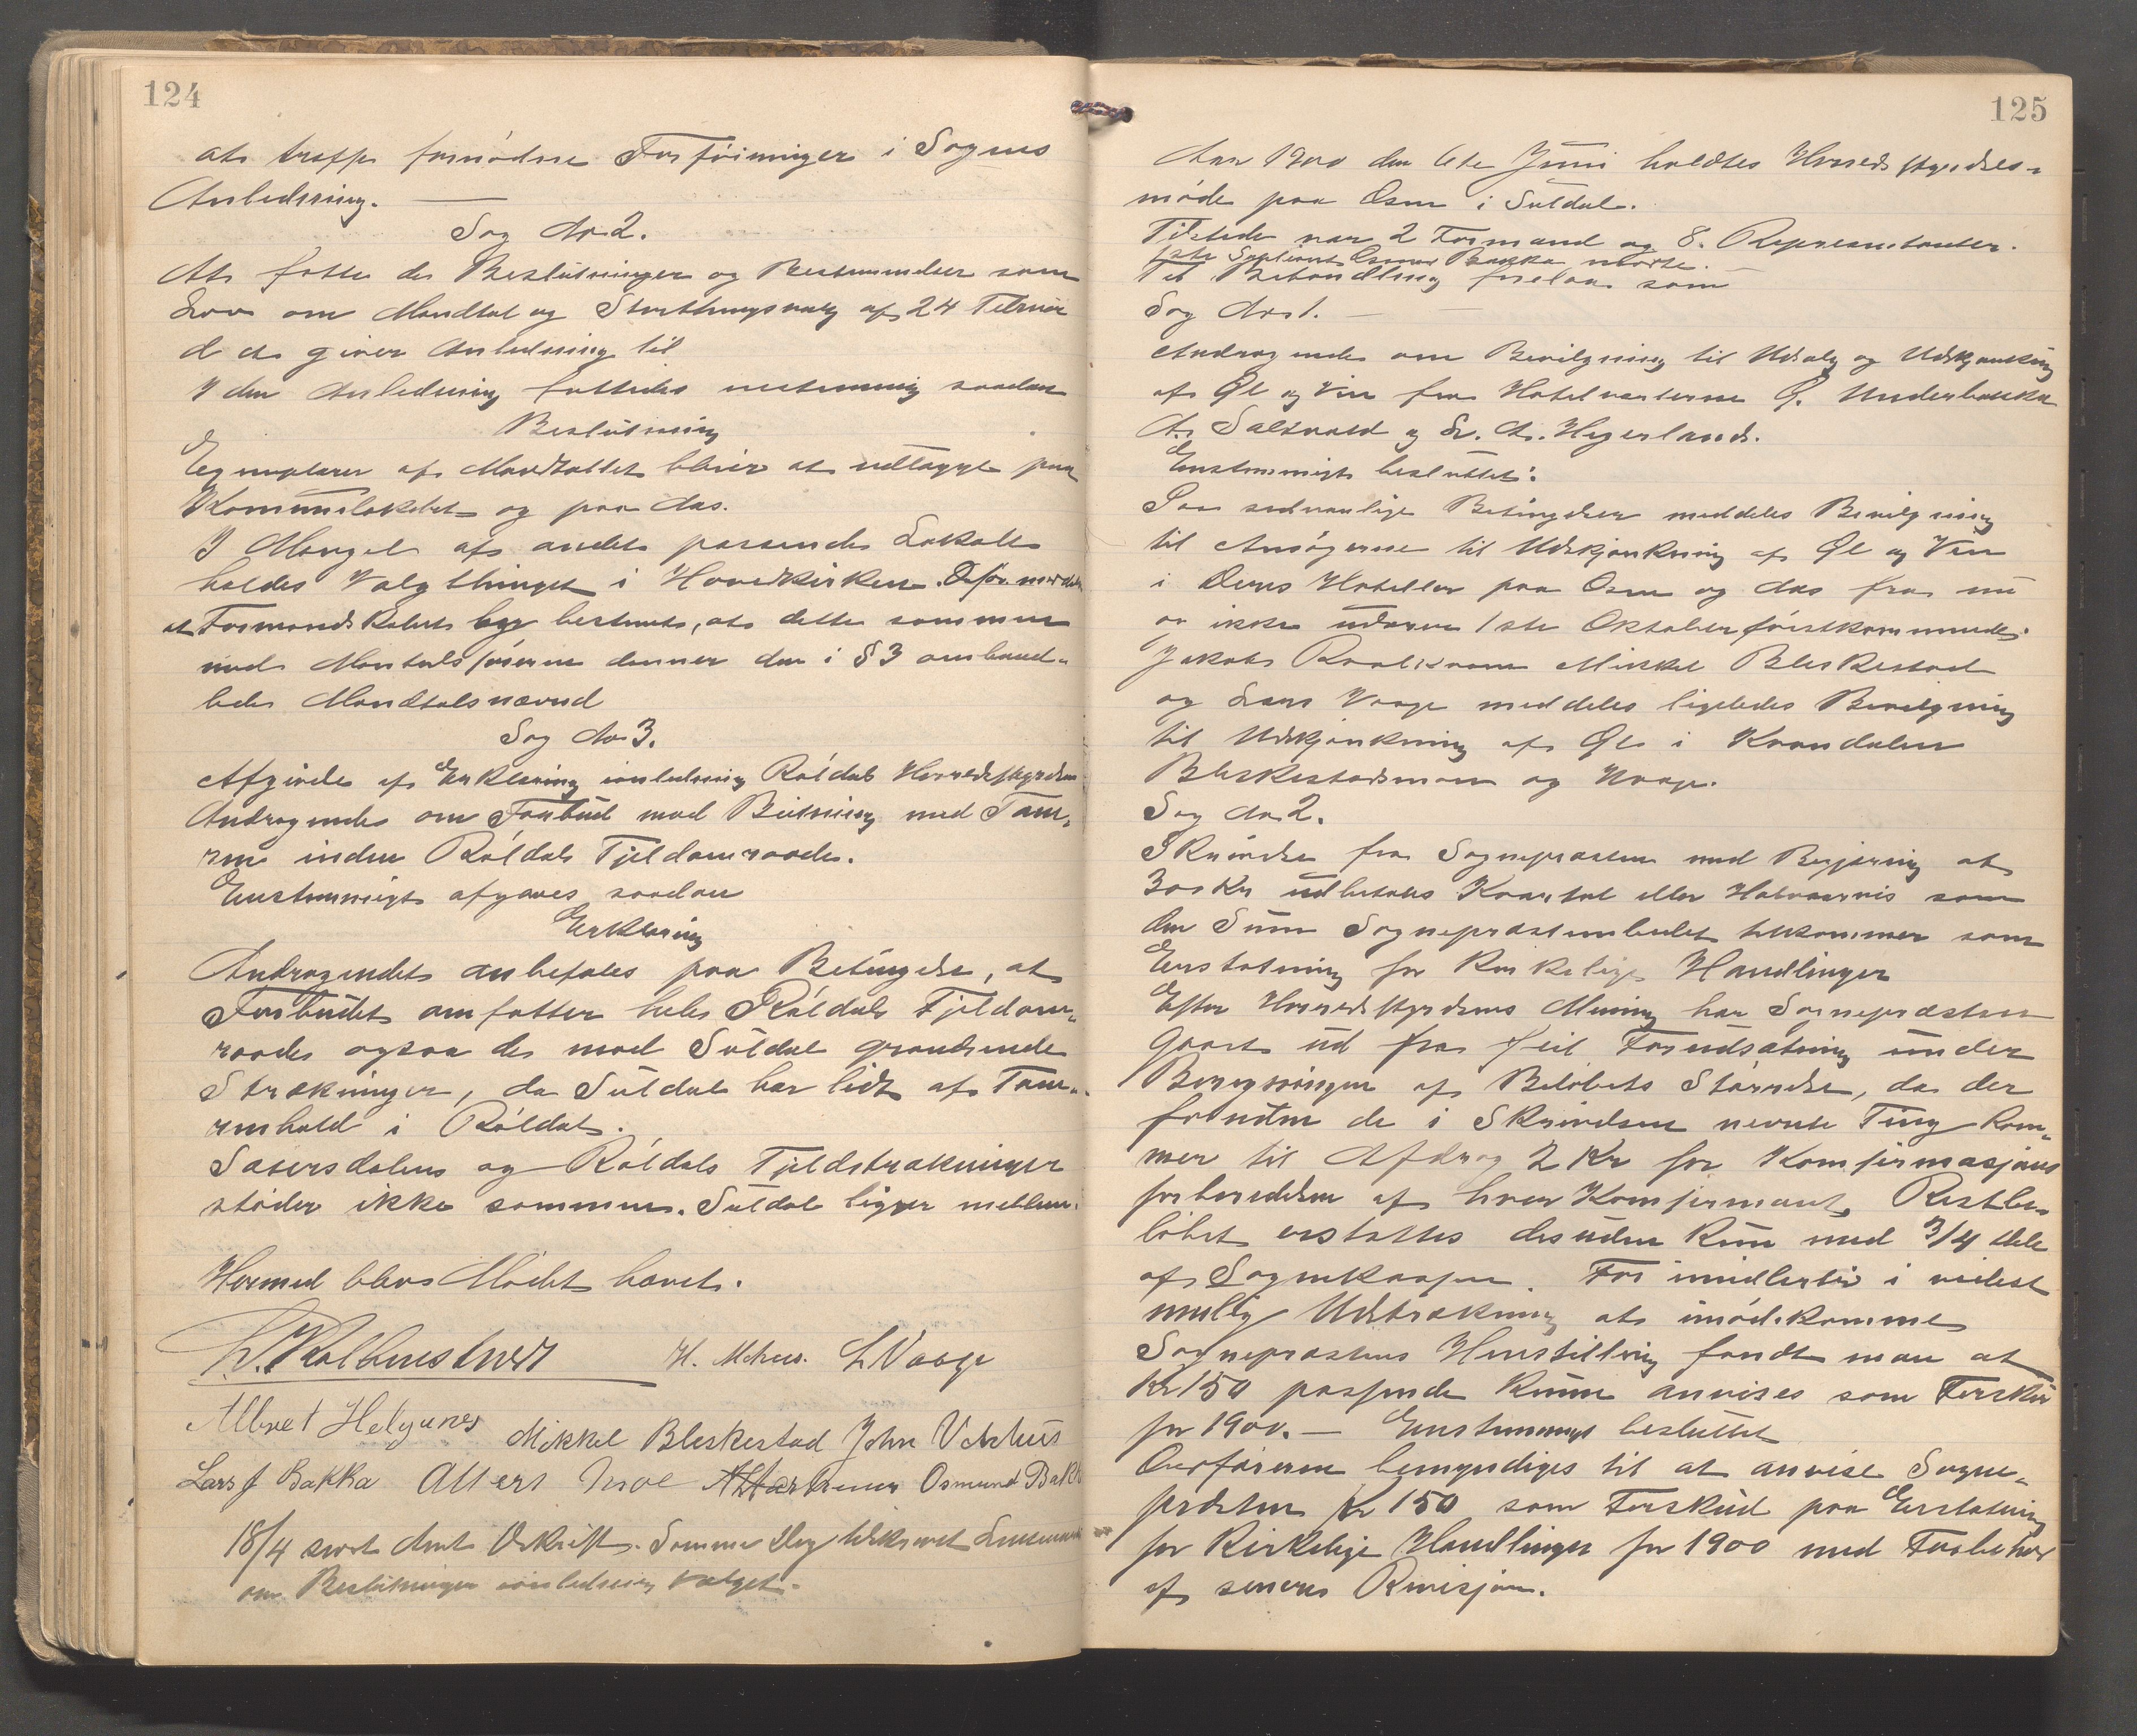 124
at træffe fornødne Forføininger i Sagens
Anledning.
Sag No 2.
At fatte de Beslutninger og Bestemmelser som
Lov om Mandtal og Storthingsvalg af 24 Februar
d. A. giver Anledning til
I den Anledning fattedes eenstemmig saadan
Beslutning
Exemplarer af Mandtallet bliver at udlægge paa
Kommunelokalet og paa Aas.
I Mangel af andet passende Lokale
holdes Valgthinget i Hovedkirken.
at Formandskabet bestemt, at dette sammen
med Mantalsføreren danner den i § 3 omhand-
lede Mandtalsnævnd
Sag No 3.
Afgivelse af Erklæring i anledning Røldal Herredsstyrelses
Andragende om Forbud mod Beitning med Tam-
ren inden Røldals Fjeldomraade.
Enstemmigt afgaves saadan
Erklæring
Andragendet anbefales paa Betingelse, at
Forbudet omfatter hele Røldals Fjeldom-
raade ogsaa de mod Suldal grændsende
Strækninger, da Suldal har lidt af Tam-
renhold i Røldal.
Sætersdalens og Røldals Fjeldstrækninger
støder ikke sammen. Suldal ligger mellem.
Hermed blev Mødet hævet.
H. Mehus. L Vaage
Albret Helganes Mikkel Bleskestad John Vetrhus
Lars J Bakka Albert Moe Osmund Bakka
18/4 sendt Amt Udskrift. Samme Dag tilskrevet Lensmanden
om Beslutninger i anledning Valget.
125
Aar 1900 den 6te Juni holdtes Herredsstyrelses-
møde paa Osen i Suldal.
Tilstede var 2 Formænd og 8. Repræsentanter.
1ste Supleant Osmund Bakka mødte.
Til Behandling forelaa som
Sag No 1.
Andragende om Bevilgning til Udsalg og Udskjænkning
af Øl og Vin fra Hotelværterne G. Underbakka
A. Saltvold og Sr. A. Hegerland.
Enstemmigt besluttet:
Paa sedvanlige Betingelser meddeles Bevilgning
til Ansøgerne til Udskjænkning af Øl og Vin
i Deres Hoteller paa Osen og Aas fra nu
og ikke udover 1ste Oktober førstkommende.
Jakob Roalkvam Mikkel Bleskestad
og Lars Vaage meddeles ligeledes Bevilgning
til Udskjænkning af Øl i Kvandalen
Bleskestadmoen og Vaage.
Sag No 2.
Skrivelse fra Sognepræsten med Begjæring at
300 Kr udbetales Kvartal eller Halvaarvis som
den Sum Sognepræstembedet tilkommer som
Erstatning for Kirkelige Handlinger
Efter Herredsstyrelsens Mening har Sognepræsten
gaaet ud fra feil Forudsætning under
Beregningen af Beløbets Størrelse, da der
foruden de i Skrivelsen nevnte Ting kom-
mer til Afdrag 2 Kr for Konfirmasjons
forberedelsen af hver Konfirmant. Restbe-
løbet erstattes desuden kun med 3/4 Dele
af Sognekassen. For imidlertid i videst
mulig Udstrækning at imødekomme
Sognepræstens Henstilling fandt man at
Kr 150 passende kunne anvises som Forskud
for 1900. — Enstemmigt besluttet
Ordføreren bemyndiges til at anvise Sogne-
præsten Kr 150 som Forskud paa Erstatning
for Kirkelige Handlinger for 1900 med Forbehold
af senere Revisjon.